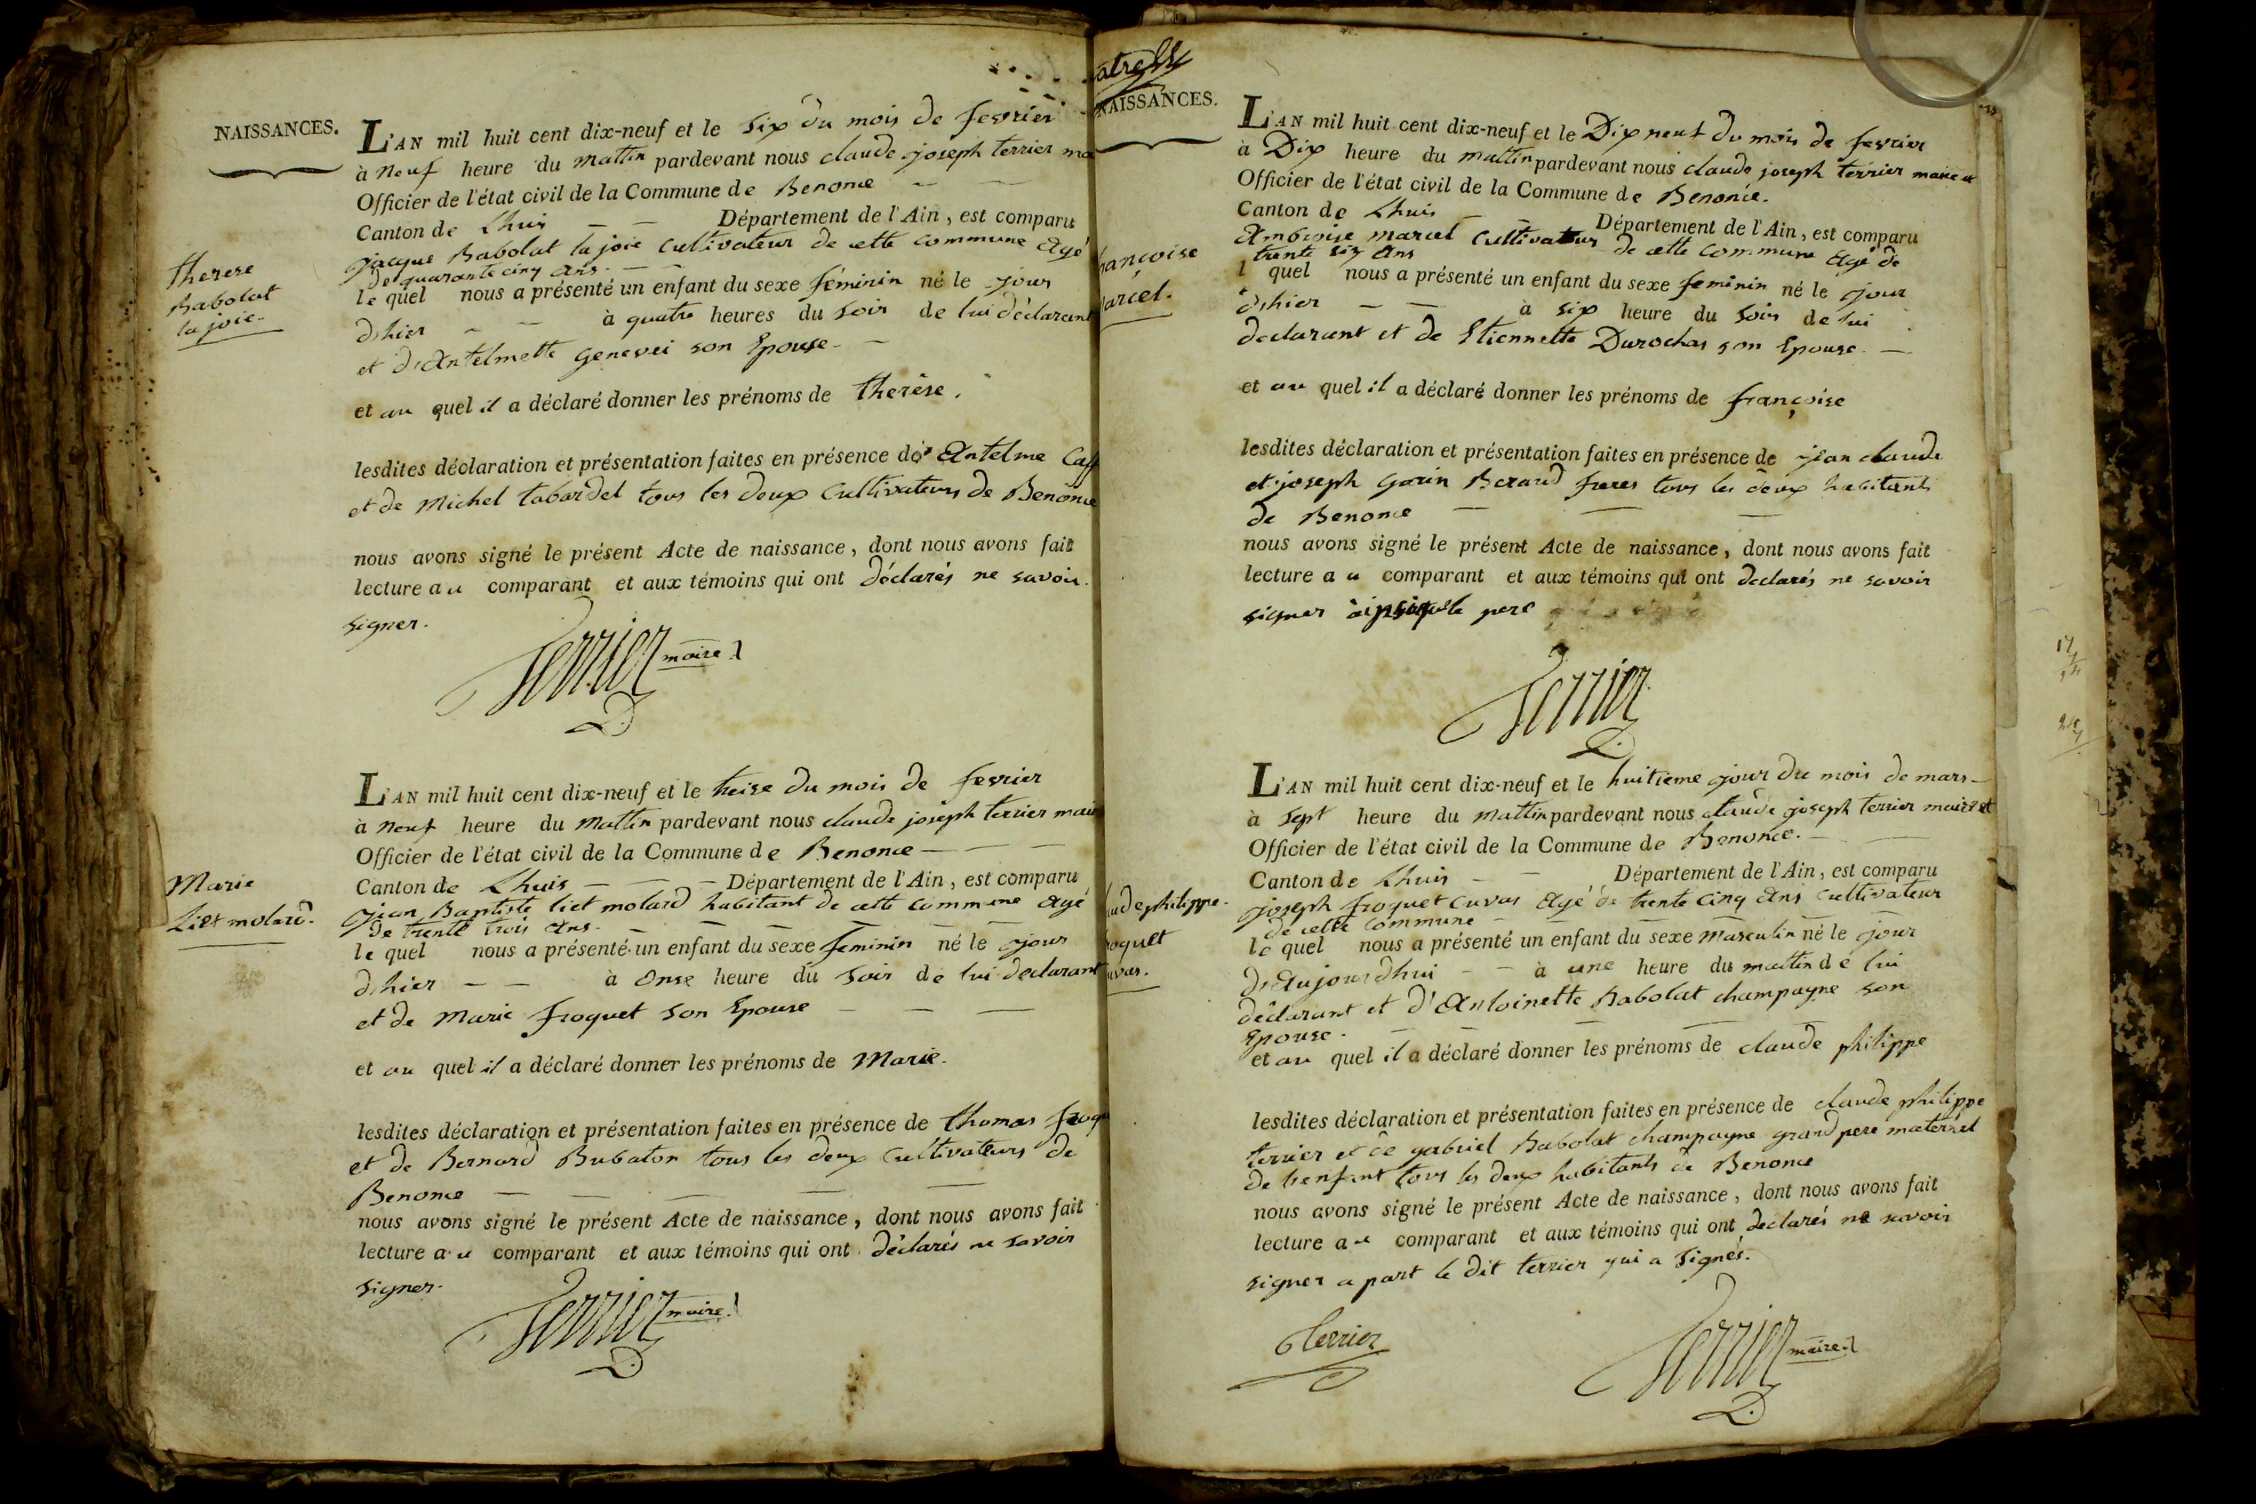 NAISSANCES.
L'AN mil huit cent dix-neuf et le six du mois de fevrier
à neuf heure du mattin pardevant nous claude joseph terrier
Officier de l'état civil de la Commune de Benonce
Canton de Lhuis Département de l'Ain, est comparu
jacque Babolat la joie Cultivateur de cette commune agé
de quarante cinq ans.
le quel nous a présenté un enfant du sexe féminin né le jour
d'hier à quatre heures du soir de lui déclarant
et d'Antelmette genevei son Epouse.
et au quel il a déclaré donner les prénoms de therèse.
lesdites déclaration et présentation faites en présence de Antelme
et de Michel tabardel tous les deux Cultivateurs de Benonce
nous avons signé le présent Acte de naissance, dont nous avons fait
lecture au comparant et aux témoins qui ont déclarés ne savoir
signer.
Terrier maire
therese
Babolat
la joie.
L'AN mil huit cent dix-neuf et le treise du mois de fevrier
à neuf heure du mattin pardevant nous claude joseph terrier maire
Officier de l'état civil de la Commune de Benonce
Canton de Lhuis Département de l'Ain, est comparu
jean Baptiste liet molard habitant de cette commune agé
de trente trois ans.
le quel nous a présenté un enfant du sexe feminin né le jour
d'hier à onse heure du soir de lui declarant
et de Marie froquet son Epouse
et au quel il a déclaré donner les prénoms de Marie.
lesdites déclaration et présentation faites en présence de thomas
et de Bernard Bubaton tous les deux Cultivateurs de
Benonce
nous avons signé le présent Acte de naissance, dont nous avons fait
lecture au comparant et aux témoins qui ont déclarés ne savoir
signer.
Terrier maire
Marie
Liet molard.
NAISSANCES.
L'AN mil huit cent dix-neuf et le Dix neuf du mois de fevrier
à Dix heure du mattin pardevant nous claude joseph terrier maire et
Officier de l'état civil de la Commune de Benonce.
Canton de Lhuis Département de l'Ain, est comparu
Ambroise marcel Cultivateur de cette commune agé de
trente six ans
l quel nous a présenté un enfant du sexe feminin né le jour
d'hier à six heure du soir de lui
declarant et de Etiennette Durochas son Epouse.
et au quel il a déclaré donner les prénoms de françoise
lesdites déclaration et présentation faites en présence de jean claude
et joseph gorin Beraud freres tous les deux habitants
de Benonce
nous avons signé le présent Acte de naissance, dont nous avons fait
lecture au comparant et aux témoins qui ont declarés ne savoir
signer ainsi que le pere
Terrier
ançoise
arcel.
L'AN mil huit cent dix-neuf et le huitieme jour du mois de mars
à sept heure du mattin pardevant nous claude joseph terrier maire et
Officier de l'état civil de la Commune de Benonce.
Canton de Lhuis Département de l'Ain, est comparu
joseph froquet cuvas agé de trente cinq ans cultivateur
de cette commune
le quel nous a présenté un enfant du sexe masculin né le jour
d'aujourdhui à une heure du mattin dé lui
déclarant et d'Antoinette Babolat champagne son
Epouse.
et au quel il a déclaré donner les prénoms de claude philippe
lesdites déclaration et présentation faites en présence de claude philippe
terrier et de gabriel Babolat champagne grand pere maternel
de l'enfant tous les deux habitants de Benonce
nous avons signé le présent Acte de naissance, dont nous avons fait
lecture au comparant et aux témoins qui ont declarés ne savoir
signer a part le dit terrier qui a signés.
Terrier
Terrier maire
ude philippe
oquet
uvas.